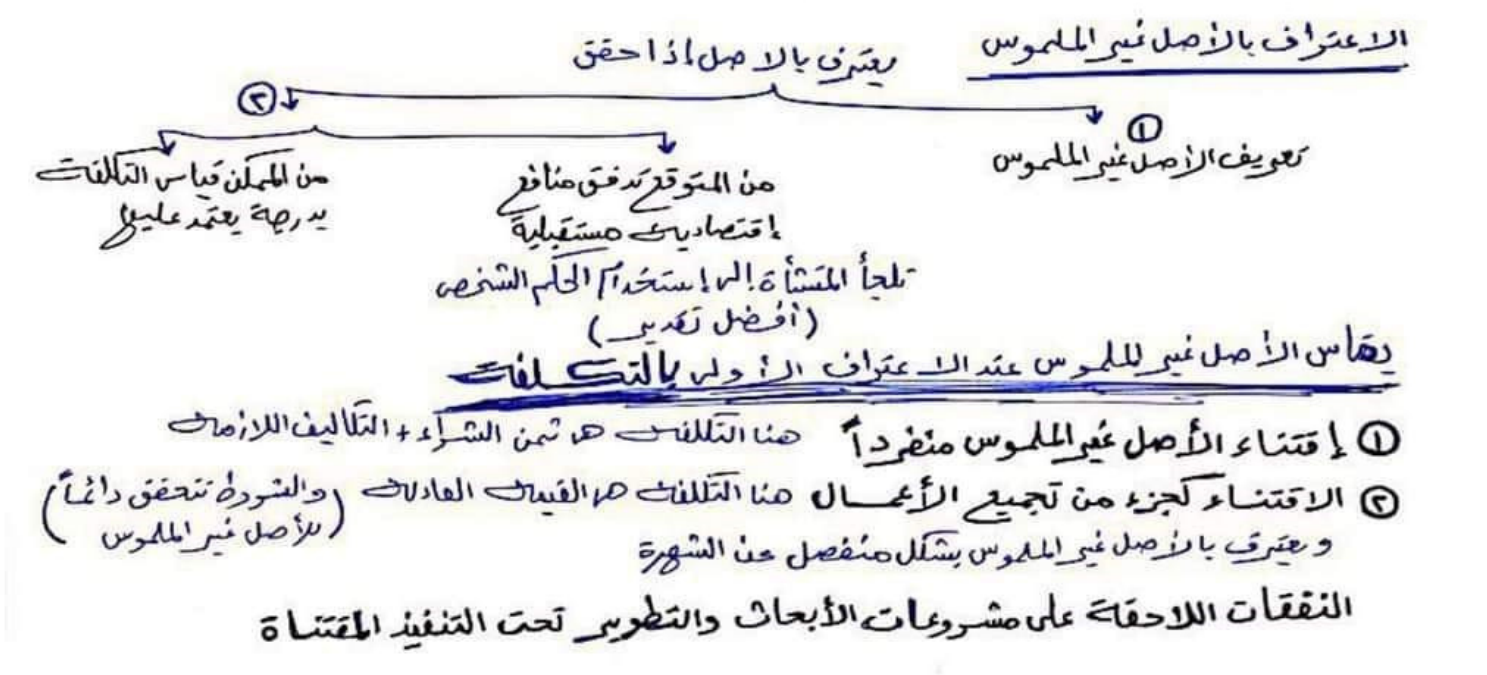 الاعتراف بالأصل غير الملموس
يعترف بالاصل إذا حقق
①
تعريف الأصل غير الملموس
②
من المتوقع تدفق منافع
إقتصادية مستقبلية
من الممكن قياس التكلفة
بدرجة يعتمد عليها
تلجأ المنشأة إلى إستخدام الحكم الشخصى
(أفضل تقدير)
يقاس الأصل غير الملموس عند الاعتراف الأولى بالتكلفة
① إقتناء الأصل غير الملموس منفرداً هنا التكلفة هى ثمن الشراء + التكاليف اللازمة
② الاقتناء كجزء من تجميع الأعمال هنا التكلفة هى القيمة العادلة (والشروط تتحقق دائماً
للأصل غير الملموس)
ويعترف بالأصل غير الملموس بشكل منفصل عن الشهرة
النفقات اللاحقة على مشروعات الأبحاث والتطوير تحت التنفيذ المقتناة